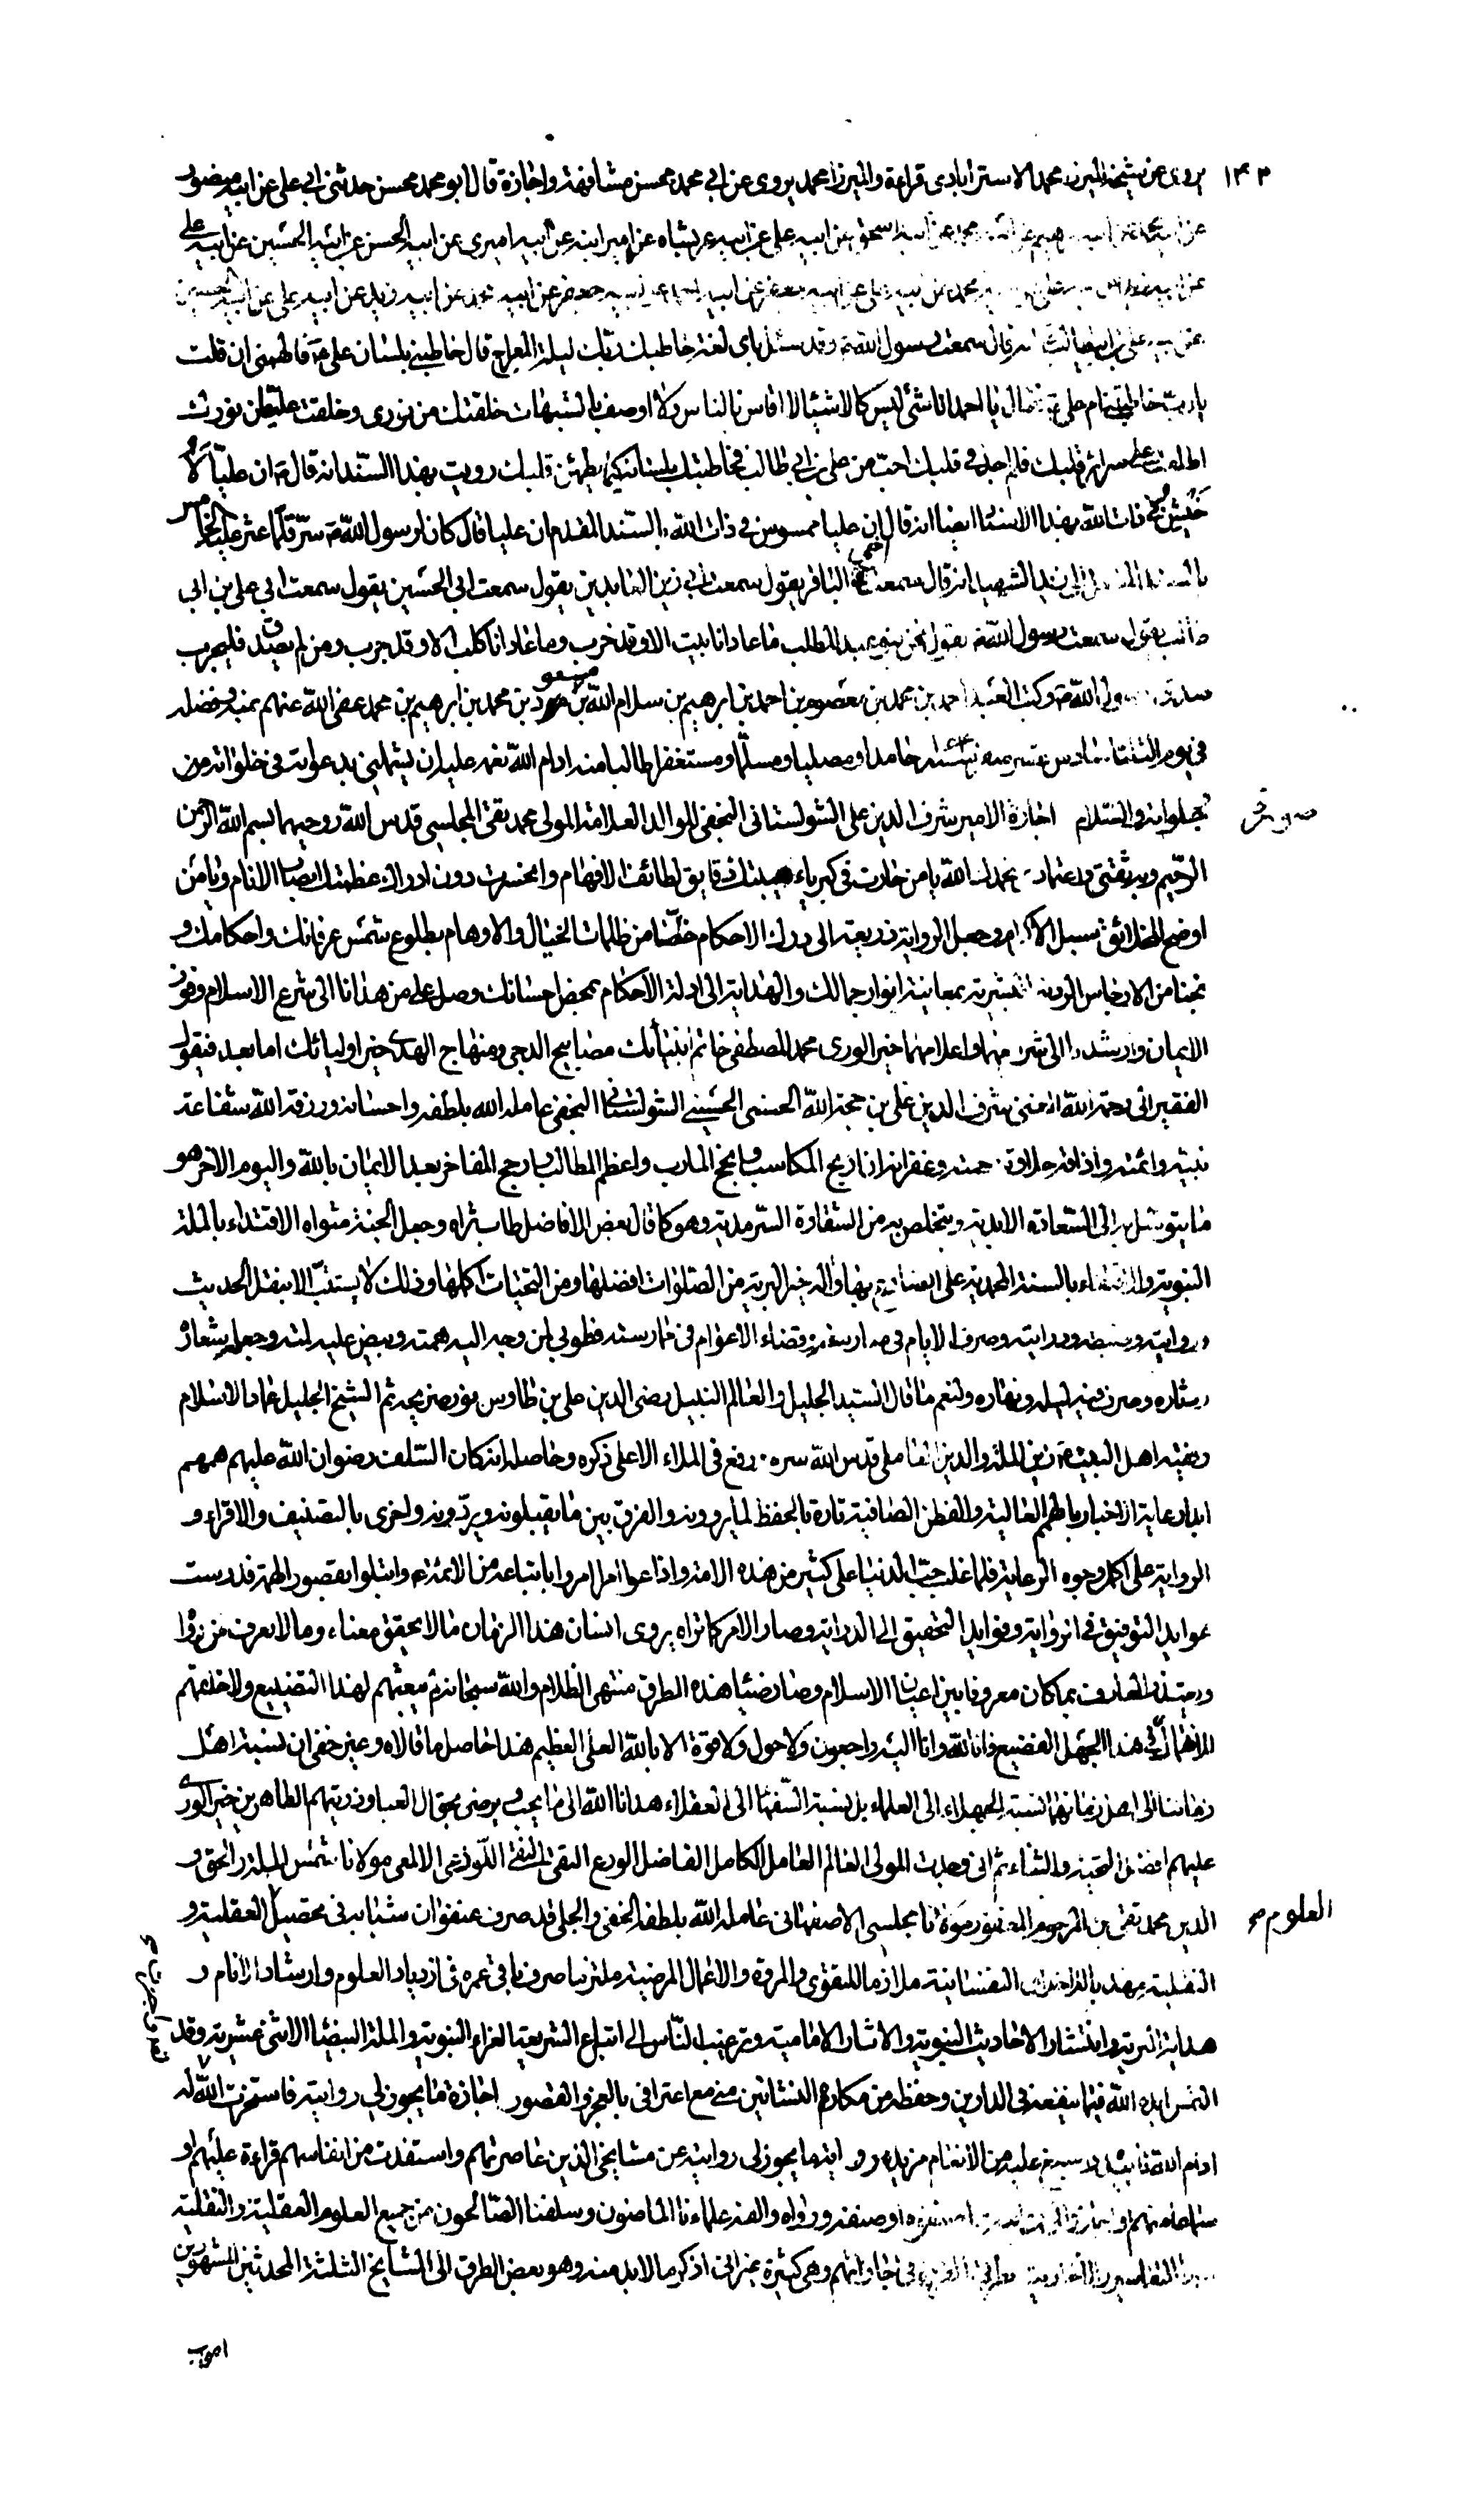 ١٣٣ يروى عن شيخه الميرزا محمد الاسترابادى قراءة والميرزا محمد يروى عن ابى محمد محسن مشافهة واجازة قال ابو محمد محسن حدثنى ابى على عن ابيه منصور
عن ابيه محمد عن ابيه عن ابيه اسحق عن ابيه على عن ابيه عربشاه عن ابيه اميرانبه عن ابيه اميرى عن ابيه الحسن عن ابيه الحسين عن ابيه على
عن ابيه على عن ابيه محمد عن ابيه على عن ابيه جعفر عن ابيه عن ابيه جعفر عن ابيه محمد عن ابيه زيد عن ابيه على عن ابيه الحسين
عن ابيه على بن ابيطالب انه قال سمعت رسول الله ص وقد سئل باى لغة خاطبك ربك ليلة المعراج قال خاطبنى بلسان على ع فالهمنى ان قلت
يا رب خاطبتنى ام على فقال يا احمد انا شئ ليس كالاشياء لا اقاس بالناس ولا اوصف بالشبهات خلقتك من نورى وخلقت عليا من نورك
اطلعت على سرائر قلبك فلم اجد فى قلبك احب من على بن ابى طالب فخاطبتك بلسانه كيما يطمئن قلبك رويت بهذا السند انه قال ص ان عليا لا
خيشن فى ذات الله بهذا الاسناد ايضا انه قال ان عليا ممسوس فى ذات الله وبالسند المقدم ان عليا قال كان لرسول الله ص سر قلما عثر عليه
بالسند الى زيد الشهيد انه قال سمعت اخى الباقر يقول سمعت ابى زين العابدين يقول سمعت ابى الحسين يقول سمعت ابى على بن ابى
طالب يقول سمعت رسول الله ص يقول نحن بنو عبد المطلب ما عادانا بيت الا وقد خرب وما عادانا كلب الا وقد جرب ومن لم يصدق فليجرب
صدق رسول الله ص وكتب العبد احمد بن محمد بن معصوم بن احمد بن ابرهيم بن سلام الله بن مسعود بن محمد بن ابرهيم بن محمد عفى الله عنهم بمنه وفضله
فى يوم الثلثا سادس عشر حامدا ومصليا ومسلما ومستغفرا طالبا منه ادام الله نعمه عليه ان يشملنى بدعواته فى خلواته من
جلواته والسلام اجازة الامير شرف الدين على الشولستانى النجفى للوالد العلامة المولى محمد تقى المجلسى قدس الله روحيهما بسم الله الرحمن
الرحيم وبه ثقتى نحمدك الله يا من حارت فى كبرياء هيبتك دقايق لطائف الافهام وانحسرت دون ادراك عظمتك ابصار الانام ويا من
اوضح للخلائق سبل وجعل الرواية ذريعة الى درك الاحكام خلصنا من ظلمات الخيال والاوهام بطلوع شمس عرفانك واحكامك و
نجنا من الارجاس الردية البشرية بمعاينة انوار جمالك والهداية الى ادلة الاحكام بمحض احسانك وصل على من هدانا الى شرع الاسلام
الايمان وارشدنا الى اعلامهما خير الورى محمد المصطفى خاتم انبيائك مصابيح الدجى ومنهاج الهدى خير اوليائك اما بعد فيقول
الفقير الى رحمة الله الغنى شرف الدين على بن حجة الله الحسنى الحسينى الشولستانى النجفى عامله الله بلطفه واحسانه ورزقه الله شفاعة
نبيه وائمته واذاقه حلاوة رحمته وغفرانه ان اربح المكاسب وانجح المارب واعظم المطالب وارجح المفاخر بعد الايمان بالله واليوم الاخر هو
ما يتوسل به الى السعادة الابدية ويتخلص به من الشقاوة السرمدية وهو كما قال بعض الافاضل طاب ثراه وجعل الجنة مثواه الاقتداء بالملة
النبوية والاقتداء بالسنة المحمدية على الصادع بها واله خير البرية من الصلوات افضلها ومن التحيات اكملها وذلك لا يستتب الا بنقل الحديث
وروايته وضبطه ودرايته وصرف الايام فى مدارسته وقضاء الاعوام فى ممارسته فطوبى لمن وجه اليه همته وجعله شعاره
دثاره وصرف فيه ليله ونهاره ولنعم ما قال السيد الجليل والعالم النبيل رضى الدين على بن طاوس نور ضريحه ثم الشيخ الجليل عماد الاسلام
وفقيه اهل البيت ع زين الملة والدين العاملى قدس الله سره ورفع فى الملاء الاعلى ذكره وحاصله انه كان السلف رضوان الله عليهم همهم
ابدا رعاية الاخبار بالهمم العالية والفطن الصافية تارة بالحفظ لما يروونه والفرق بين ما يقبلونه ويردونه واخرى بالتصنيف والاقراء و
الرواية على اكمل وجوه الرعاية فلما غلب حب الدنيا على كثير من هذه الامة واذاعوا ما امروا باتباعه من الائمة ع وابتلوا بقصور الهمة فدرست
عوايد التوفيق فى الرواية وفوايد التحقيق الى الدراية وصار الامر كما تراه يروى انسان هذا الزمان ما لا يحقق معناه وما لا يعرف من رواه
بما كان معروفا بين اعيان الاسلام وصار ضياء هذه الطرق منتهى الظلام والله سبحانه يعينهم لهذا التضييع
فى هذا الجهل الفضيع فانا لله وانا اليه راجعون ولا حول ولا قوة الا بالله العلى العظيم هذا حاصل ما قالاه وغير خفى ان نسبة اهل
زماننا الى اهل زمانهما نسبة الجهلاء الى العلماء بل نسبة السفهاء الى العقلاء هدانا الله الى ما يحب ويرضى بحق ال العبا وذريتهم الطاهرين خير الورى
عليهم افضل التحية والثناء ثم انى وجدت المولى العالم العامل الكامل الفاضل الورع التقى النقى اللوذعى الالمعى مولانا شمس الملة والحق و
الدين محمد تقى بن المرحوم المغفور مولانا مجلسى الاصفهانى عامله الله بلطفه الخفى والجلى قد صرف عنفوان شبابه فى تحصيل العلوم صح العقلية و
النقلية النفسانية ملازما للتقوى والمروة والاعمال المرضية ملتزما صرف باقى عمره فى ازدياد العلوم وارشاد الانام و
هداية البرية وانتشار الاحاديث النبوية والاثار الامامية وترغيب الناس الى اتباع الشريعة الغراء النبوية والملة البيضاء الاثنى عشرية وقد
التمس ايده الله فيما ينفعه فى الدارين وحفظه من مكاره النشاتين منى مع اعترافى بالعجز والقصور اجازة ما يجوز لى روايته فاستخرت الله له
ادام الله عليه من الانعام مزيده رواية ما يجوز لى روايته عن مشايخى الذين عاصرتهم واستفدت من انفاسهم قراءة عليهم او
سماعا منهم او اجازة او صنفه ورواه والفه علماءنا الماضون وسلفنا الصالحون من جميع العلوم العقلية والنقلية
التفاسير فى اجازاتهم وهى كثيرة غير انى اذكر ما لابد منه وهو بعض الطرق الى المشايخ الثلثة المحدثين المشهورين